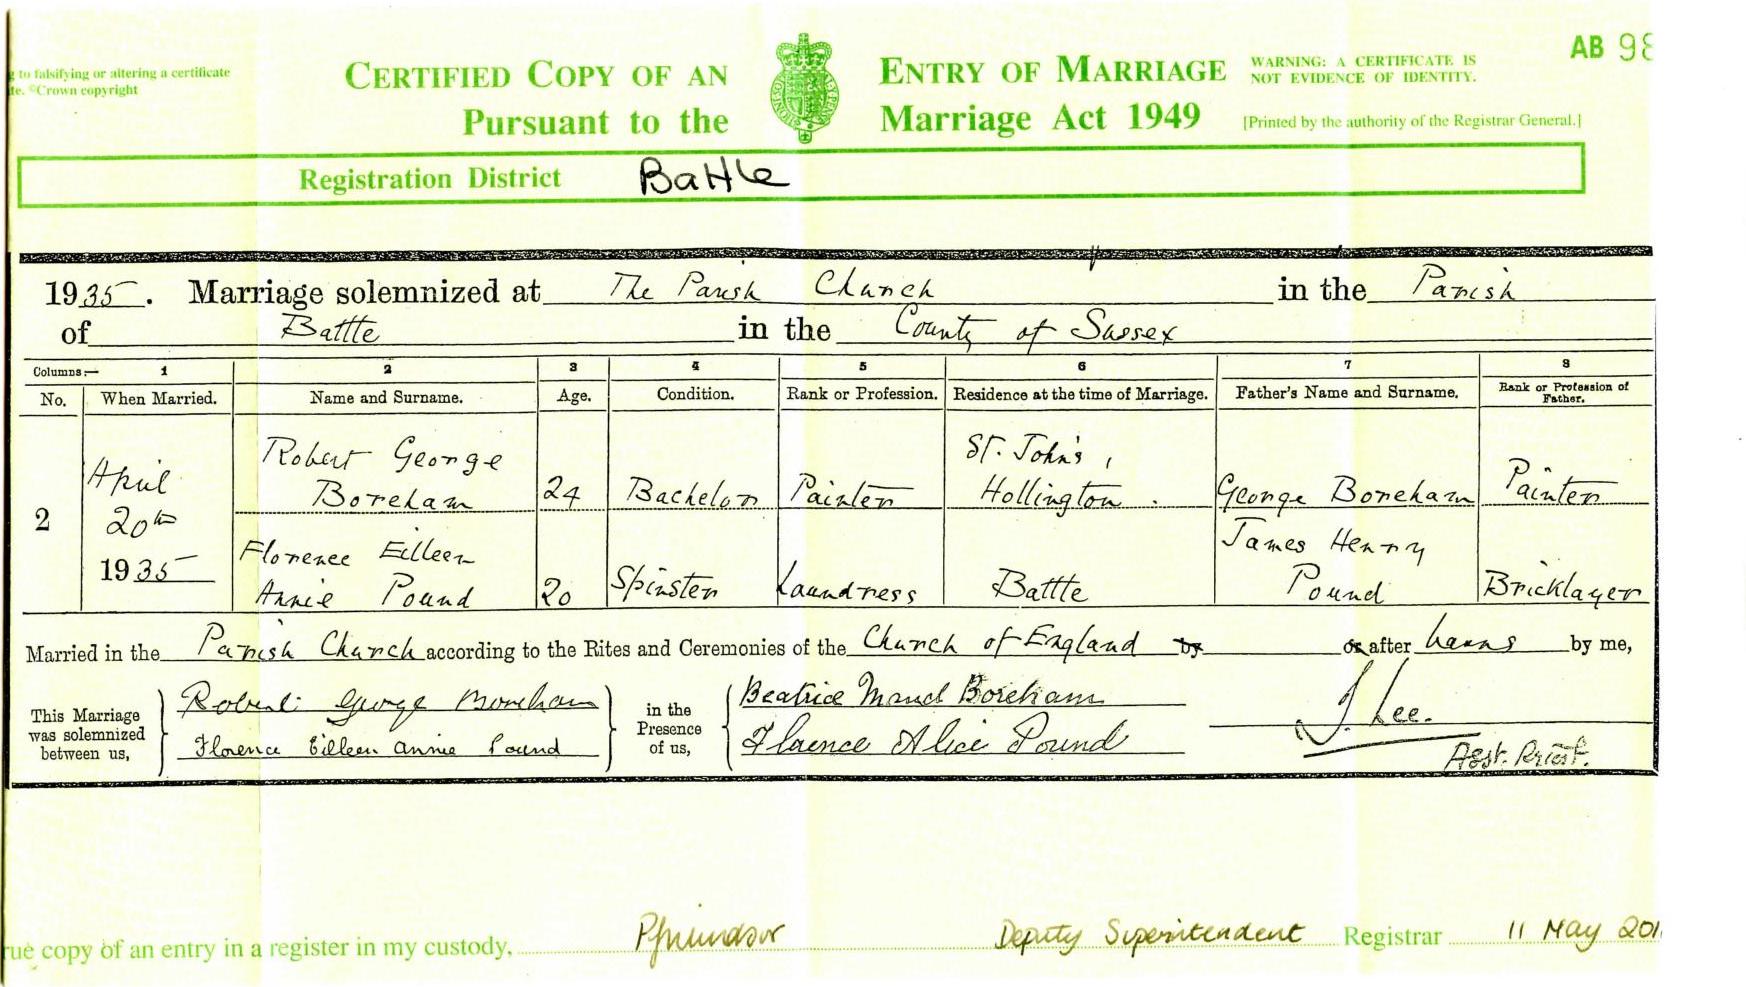 AB 98
g to falsifying or altering a certificate
te. ©Crown copyright
CERTIFIED COPY OF AN ENTRY OF MARRIAGE
Pursuant to the Marriage Act 1949
WARNING: A CERTIFICATE IS
NOT EVIDENCE OF IDENTITY.
[Printed by the authority of the Registrar General.]
Registration District Battle
1935. Marriage solemnized at The Parish Church in the Parish
of Battle in the County of Sussex
Columns:— 1 2 3 4 5 6 7 8
No. When Married. Name and Surname. Age. Condition. Rank or Profession. Residence at the time of Marriage. Father's Name and Surname. Rank or Profession of Father.
2 April 20th 1935
Robert George Boreham 24 Bachelor Painter St. John's, Hollington. George Boreham Painter
Florence Eilleen Annie Pound 20 Spinster Laundress Battle James Henry Pound Bricklayer
Married in the Parish Church according to the Rites and Ceremonies of the Church of England by or after banns by me,
This Marriage was solemnized between us,
Robert George Boreham
Florence Eilleen Annie Pound
in the Presence of us,
Beatrice Maud Boreham
Florence Alice Pound
J. Lee.
Asst. Priest.
rue copy of an entry in a register in my custody, Deputy Superintendent Registrar 11 May 201